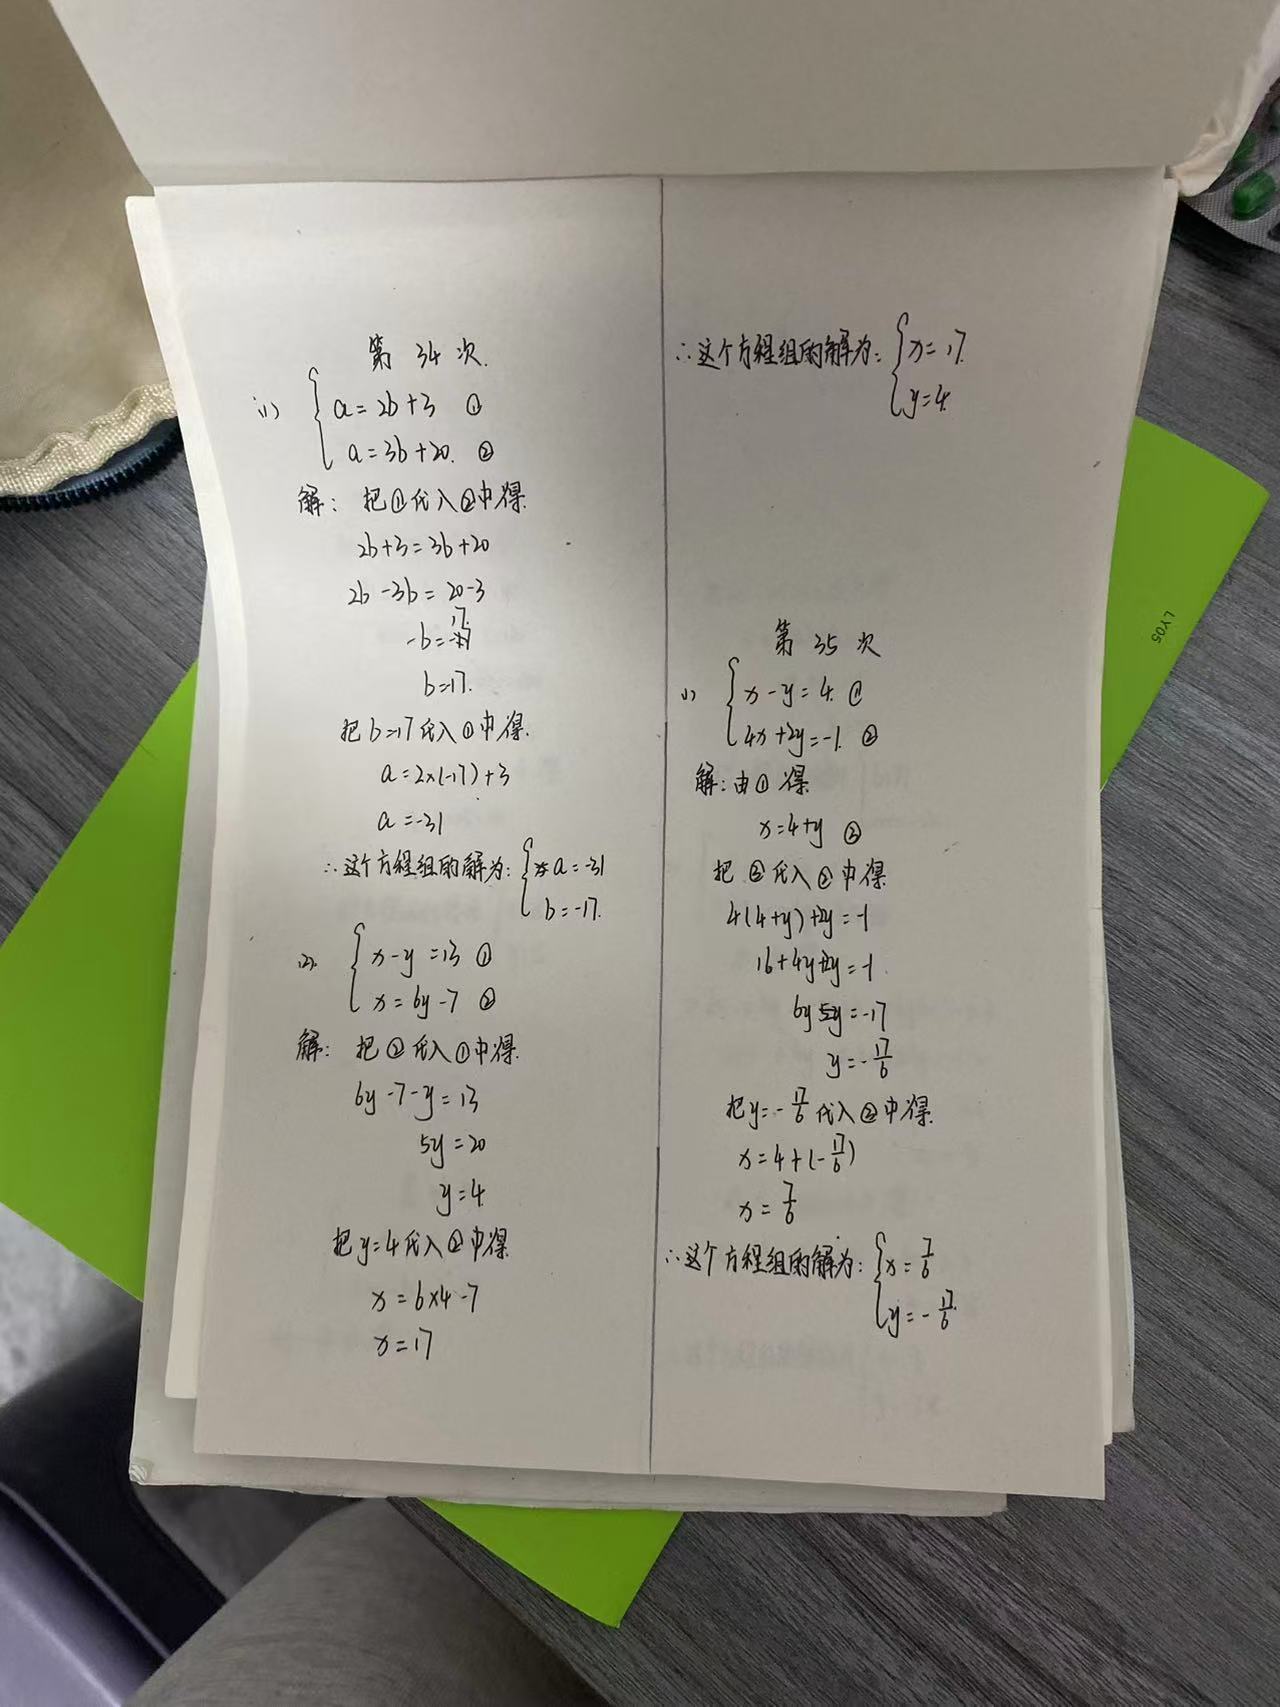 第 34 次.
(1) { a = 2b + 3 ①
a = 3b + 20. ②
解： 把①代入②中得.
2b+3 = 3b+20
2b - 3b = 20-3
-b = 17.
b=17.
把 b=17 代入①中得.
a = 2×(-17)+3
a = -31
∴这个方程组的解为: { a = -31
b = -17.
(2). { x - y = 13 ①
x = 6y - 7 ②
解： 把②代入①中得.
6y - 7 - y = 13
5y = 20
y = 4.
把 y = 4 代入②中得.
x = 6×4 - 7
x = 17
∴这个方程组的解为: { x = 17.
y = 4.
第 35 次
(1) { x - y = 4. ①
4x + 2y = -1. ②
解: 由① 得.
x = 4+y ③
把 ③代入②中得
4(4+y)+2y = -1
16+4y+2y = -1.
6y = -17
y = -17/6
把 y = -17/6 代入②中得.
x = 4+(-17/6)
x = 7/6
∴这个方程组的解为: { x = 7/6
y = -17/6.
LY05